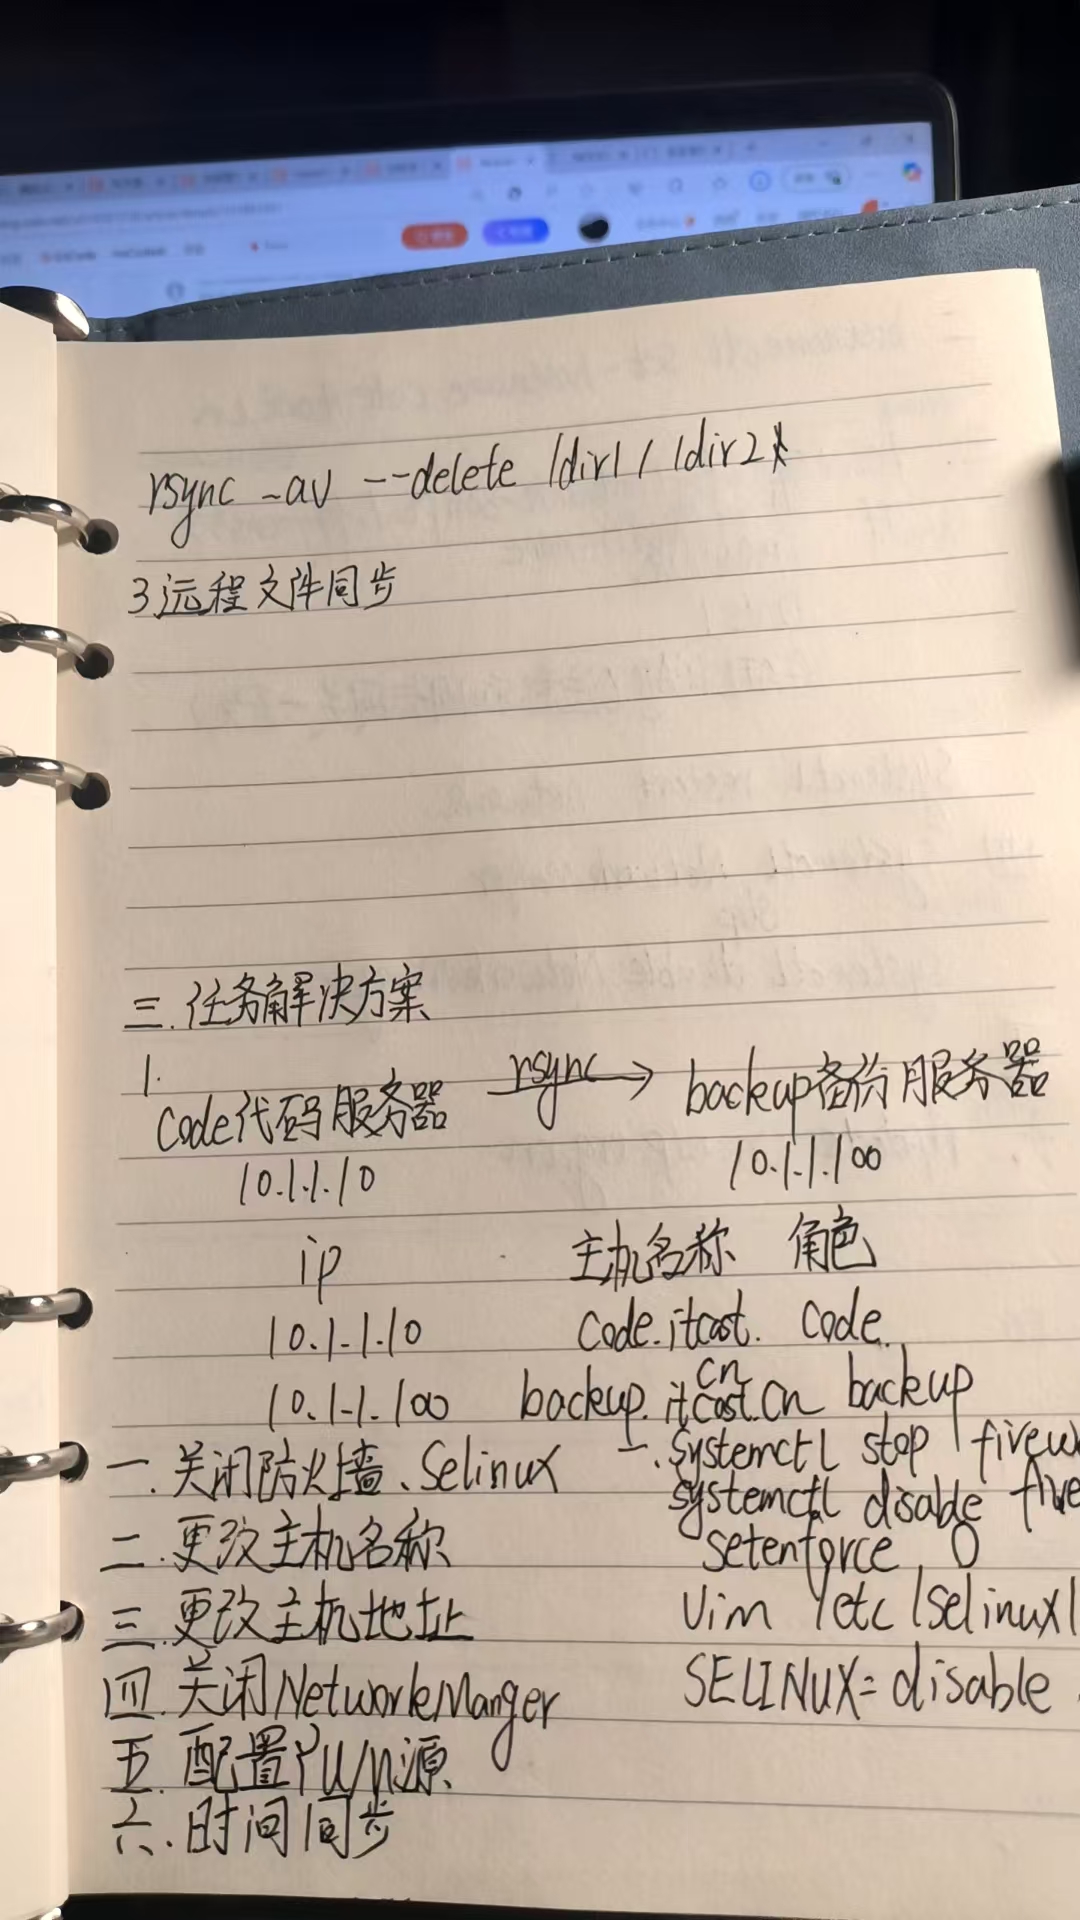 rsync -av --delete /dir1/ /dir2
3.远程文件同步
三.任务解决方案
1.
code代码服务器 rsync → backup备份服务器
10.1.1.10 10.1.1.100
ip 主机名称 角色
10.1.1.10 code.itcast. code
cn
10.1.1.100 backup.itcast.cn backup
一.关闭防火墙、Selinux 一.systemctl stop firew
systemctl disable fire
二.更改主机名称 setenforce 0
三.更改主机地址 vim /etc/selinux/
四.关闭NetworkManger SELINUX=disable
五.配置YUM源
六.时间同步